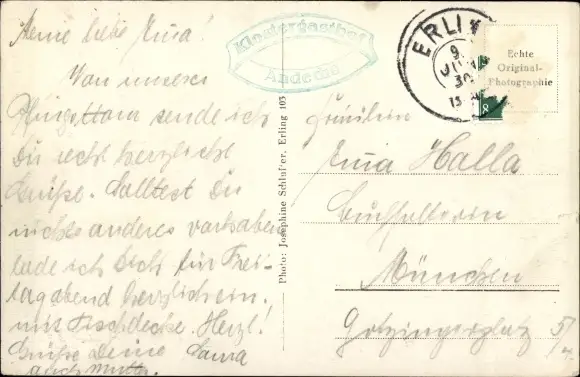 Meine liebe Erna!
Von unserer
Pfingsttour sende ich
Du recht herzliche
Grüße. Solltest Du
nichts anderes vorhaben
lade ich Dich für Frei-
tag abend herzlich ein.
mit Tischdecke. Herzl!
Grüße Deine Laura
auch Mutter.
Klostergasthof
Andechs
Photo: Josephine Schlutter, Erling 105
ERLING
9.
JUN
30
Echte
Original-
Photographie
8
Fräulein
Erna Halla
Buchhalterin
München
Gotzingerplatz 5/